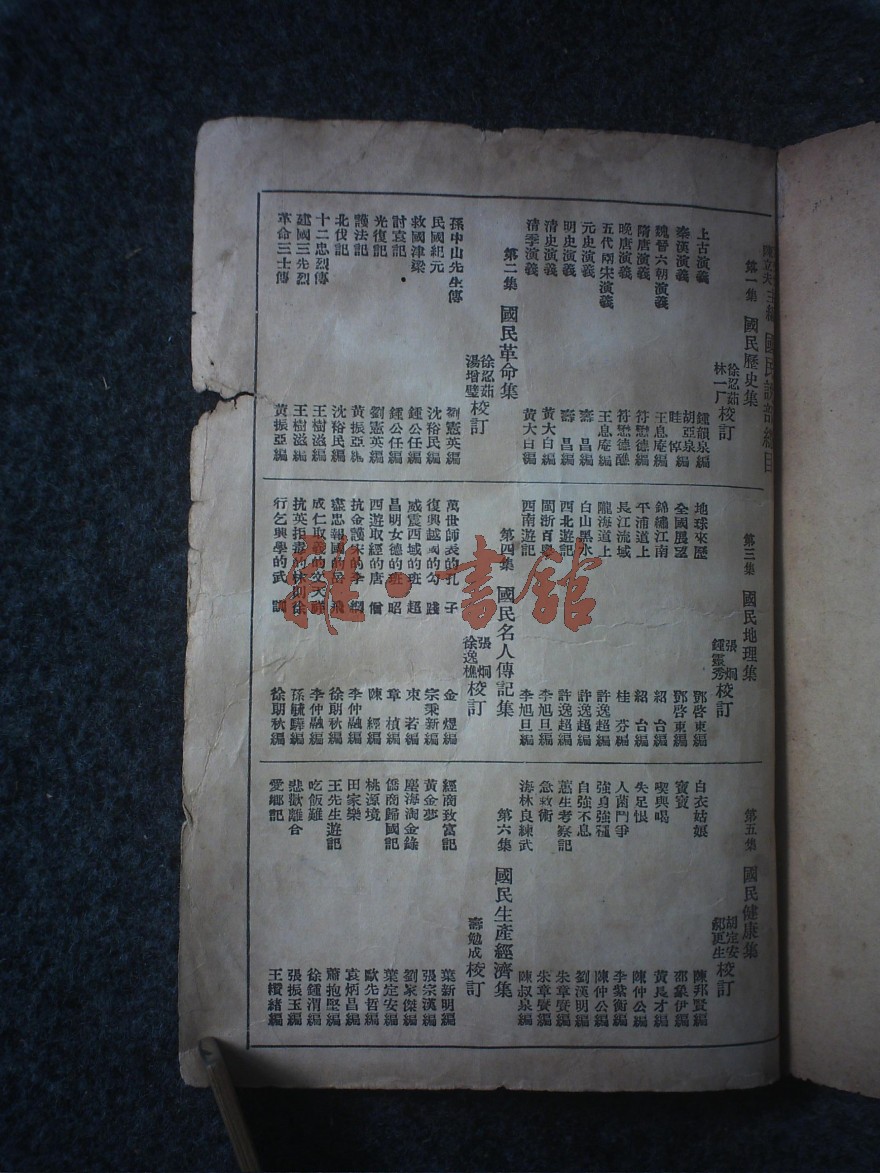 陳立夫主編 國民說部總目
第一集 國民歷史集 徐忍茹 林一厂 校訂
上古演義 鍾韻泉編
秦漢演義 胡亞泉編
魏晉六朝演義 王息庵編
隋唐演義 符懋德編
晚唐演義
五代兩宋演義 王息庵編
元史演義 壽昌編
明史演義 壽昌編
清史演義 黃大白編
清季演義 黃大白編
第二集 國民革命集 徐忍茹 湯增璧 校訂
孫中山先生傳 劉憲英編
民國紀元 沈裕民編
救國津梁 鍾公任編
討袁記 鍾公任編
光復記 劉憲英編
護法記 黃振亞編
北伐記 沈裕民編
十二忠烈傳 王樹滋編
建國三先烈 王樹滋編
革命三士傳 黃振亞編
第三集 國民地理集 張炯 鍾靈秀 校訂
地球來歷 鄧啓東編
全國展望 鄧啓東編
錦繡江南 紹台編
平浦道上 紹台編
長江流域 桂芬編
隴海道上 許逸超編
白山黑水 許逸超編
西北遊記 許逸超編
閩浙百粵 李旭旦編
西南遊記 李旭旦編
第四集 國民名人傳記集 張炯 徐逸樵 校訂
萬世師表的孔子 金煜編
復興越國的勾踐 宗秉新編
威震西域的班超 束若編
昌明女德的班昭 章楨編
西遊取經的唐僧 陳經編
抗金護宋的李綱 李仲融編
盡忠報國的岳飛 徐朗秋編
成仁取義的文天祥 李仲融編
抗英拒毒的林則徐 孫毓驊編
行乞興學的武訓 徐朗秋編
第五集 國民健康集 胡定安 郝更生 校訂
白衣姑娘 陳邦賢編
寶寶 邵象伊編
喫與喝 黃長才編
失足恨 陳仲公編
人菌鬥爭 李紫衡編
強身強種 陳仲公編
自強不息 劉漢明編
蕙生考察記 朱章賡編
急救術 朱章賡編
海林良練武 陳叔泉編
第六集 國民生產經濟集 壽勉成 校訂
經商致富記 葉新明編
黃金夢 張宗漢編
塵海淘金錄 劉家傑編
僑商歸國記 葉定安編
桃源境 歐先哲編
田家樂 袁炳昌編
王先生遊記 蕭抱堅編
吃飯難 徐鍾渭編
悲歡離合 張振玉編
愛鄉記 王纘緒編
雜·書館